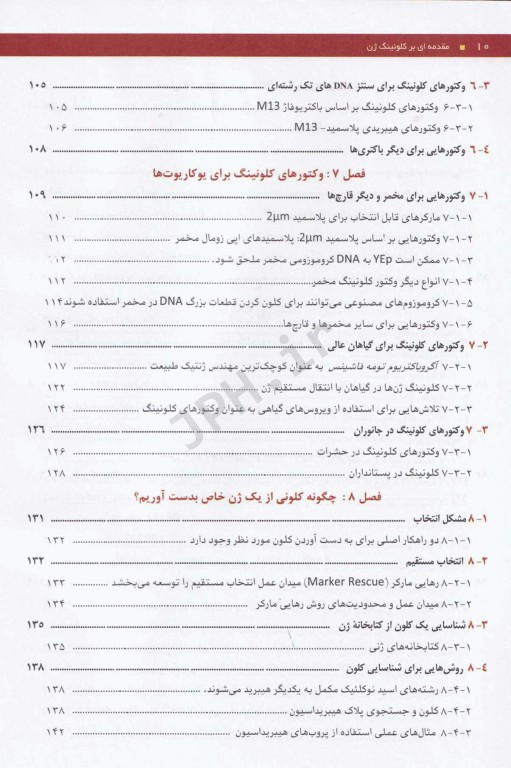 ۱۰ ■ مقدمه ای بر کلونینگ ژن
۶-۳ وکتورهای کلونینگ برای سنتز DNA های تک رشته‌ای ........ ۱۰۵
۶-۳-۱ وکتورهای کلونینگ بر اساس باکتریوفاژ M13 ........ ۱۰۵
۶-۳-۲ وکتورهای هیبریدی پلاسمید- M13 ........ ۱۰۶
۶-۴ وکتورهایی برای دیگر باکتری‌ها ........ ۱۰۸
فصل ۷ : وکتورهای کلونینگ برای یوکاریوت‌ها
۷-۱ وکتورهایی برای مخمر و دیگر قارچ‌ها ........ ۱۰۹
۷-۱-۱ مارکرهای قابل انتخاب برای پلاسمید 2µm ........ ۱۱۰
۷-۱-۲ وکتورهایی بر اساس پلاسمید 2µm؛ پلاسمیدهای اپی زومال مخمر ........ ۱۱۱
۷-۱-۳ ممکن است YEp به DNA کروموزومی مخمر ملحق شود. ........ ۱۱۲
۷-۱-۴ انواع دیگر وکتور کلونینگ مخمر ........ ۱۱۲
۷-۱-۵ کروموزوم‌های مصنوعی می‌توانند برای کلون کردن قطعات بزرگ DNA در مخمر استفاده شوند ۱۱۴
۷-۱-۶ وکتورهایی برای سایر مخمرها و قارچ‌ها ........ ۱۱۶
۷-۲ وکتورهای کلونینگ برای گیاهان عالی ........ ۱۱۷
۷-۲-۱ آگروباکتریوم تومه فاشینس به عنوان کوچک‌ترین مهندس ژنتیک طبیعت ........ ۱۱۷
۷-۲-۲ کلونینگ ژن‌ها در گیاهان با انتقال مستقیم ژن ........ ۱۲۲
۷-۲-۳ تلاش‌هایی برای استفاده از ویروس‌های گیاهی به عنوان وکتورهای کلونینگ ........ ۱۲۴
۷-۳ وکتورهای کلونینگ در جانوران ........ ۱۲۶
۷-۳-۱ وکتورهای کلونینگ در حشرات ........ ۱۲۶
۷-۳-۲ کلونینگ در پستانداران ........ ۱۲۸
فصل ۸ : چگونه کلونی از یک ژن خاص بدست آوریم؟
۸-۱ مشکل انتخاب ........ ۱۳۱
۸-۱-۱ دو راهکار اصلی برای به دست آوردن کلون مورد نظر وجود دارد ........ ۱۳۲
۸-۲ انتخاب مستقیم ........ ۱۳۲
۸-۲-۱ رهایی مارکر (Marker Rescue) میدان عمل انتخاب مستقیم را توسعه می‌بخشد ........ ۱۳۳
۸-۲-۲ میدان عمل و محدودیت‌های روش رهایی مارکر ........ ۱۳۴
۸-۳ شناسایی یک کلون از کتابخانهٔ ژن ........ ۱۳۵
۸-۳-۱ کتابخانه‌های ژنی ........ ۱۳۵
۸-۴ روش‌هایی برای شناسایی کلون ........ ۱۳۸
۸-۴-۱ رشته‌های اسید نوکلئیک مکمل به یکدیگر هیبرید می‌شوند، ........ ۱۳۸
۸-۴-۲ کلون و جستجوی پلاک هیبریداسیون ........ ۱۳۸
۸-۴-۳ مثال‌های عملی استفاده از پروب‌های هیبریداسیون ........ ۱۴۲
JPH.ir